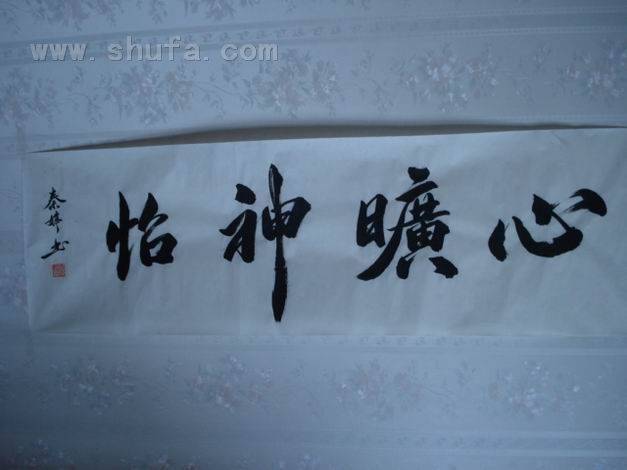 www.shufa.com
心曠神怡
秦婷书